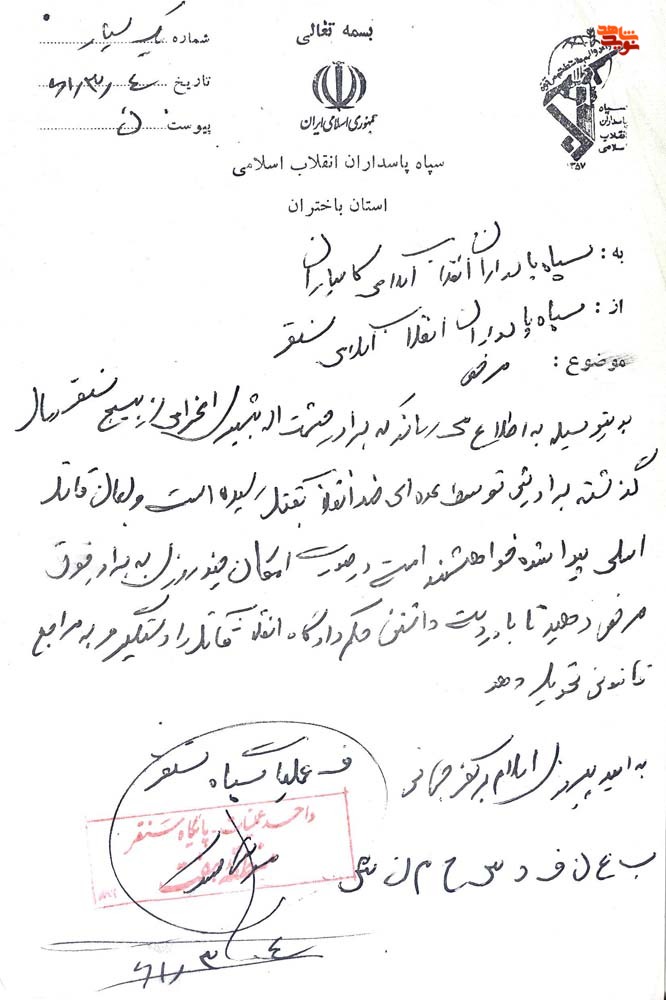 شاهد
نوید
بسمه تعالی
شماره
تاریخ ۶۱/۳/۴
پیوست
جمهوری اسلامی ایران
سپاه
پاسداران
انقلاب
اسلامی
۱۳۵۷
سپاه پاسداران انقلاب اسلامی
استان باختران
به: سپاه پاسداران انقلاب اسلامی کامیاران
از: سپاه پاسداران انقلاب اسلامی سنقر
موضوع: مرخصی
بدینوسیله به اطلاع می رساند که برادر حشمت اله اعزامی از بسیج سنقر سال
گذشته برادرش توسط عده ای ضد انقلاب بقتل رسیده است و الان قاتل
اصلی پیدا شده خواهشمند است در صورت امکان چند روزی به برادر فوق
مرخصی دهید تا با در دست داشتن حکم دادگاه انقلاب قاتل را دستگیر و به مراجع
قانونی تحویل دهد
به امید پیروزی اسلام بر کفر جهانی
ف عملیات سپاه سنقر
واحد عملیات پایگاه سنقر
منطقه هفت
ب ع ل ف د س ح م ن ش
۶۱/۳/۴